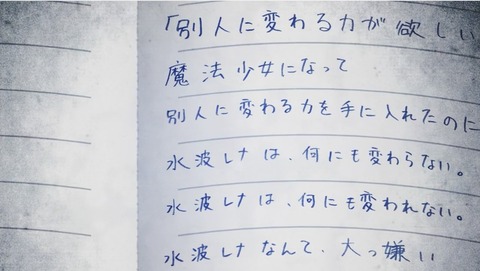 「別人に変わる力が欲しい
魔法少女になって
別人に変わる力を手に入れたのに
水波レナは、何にも変わらない。
水波レナは、何にも変われない。
水波レナなんて、大っ嫌い